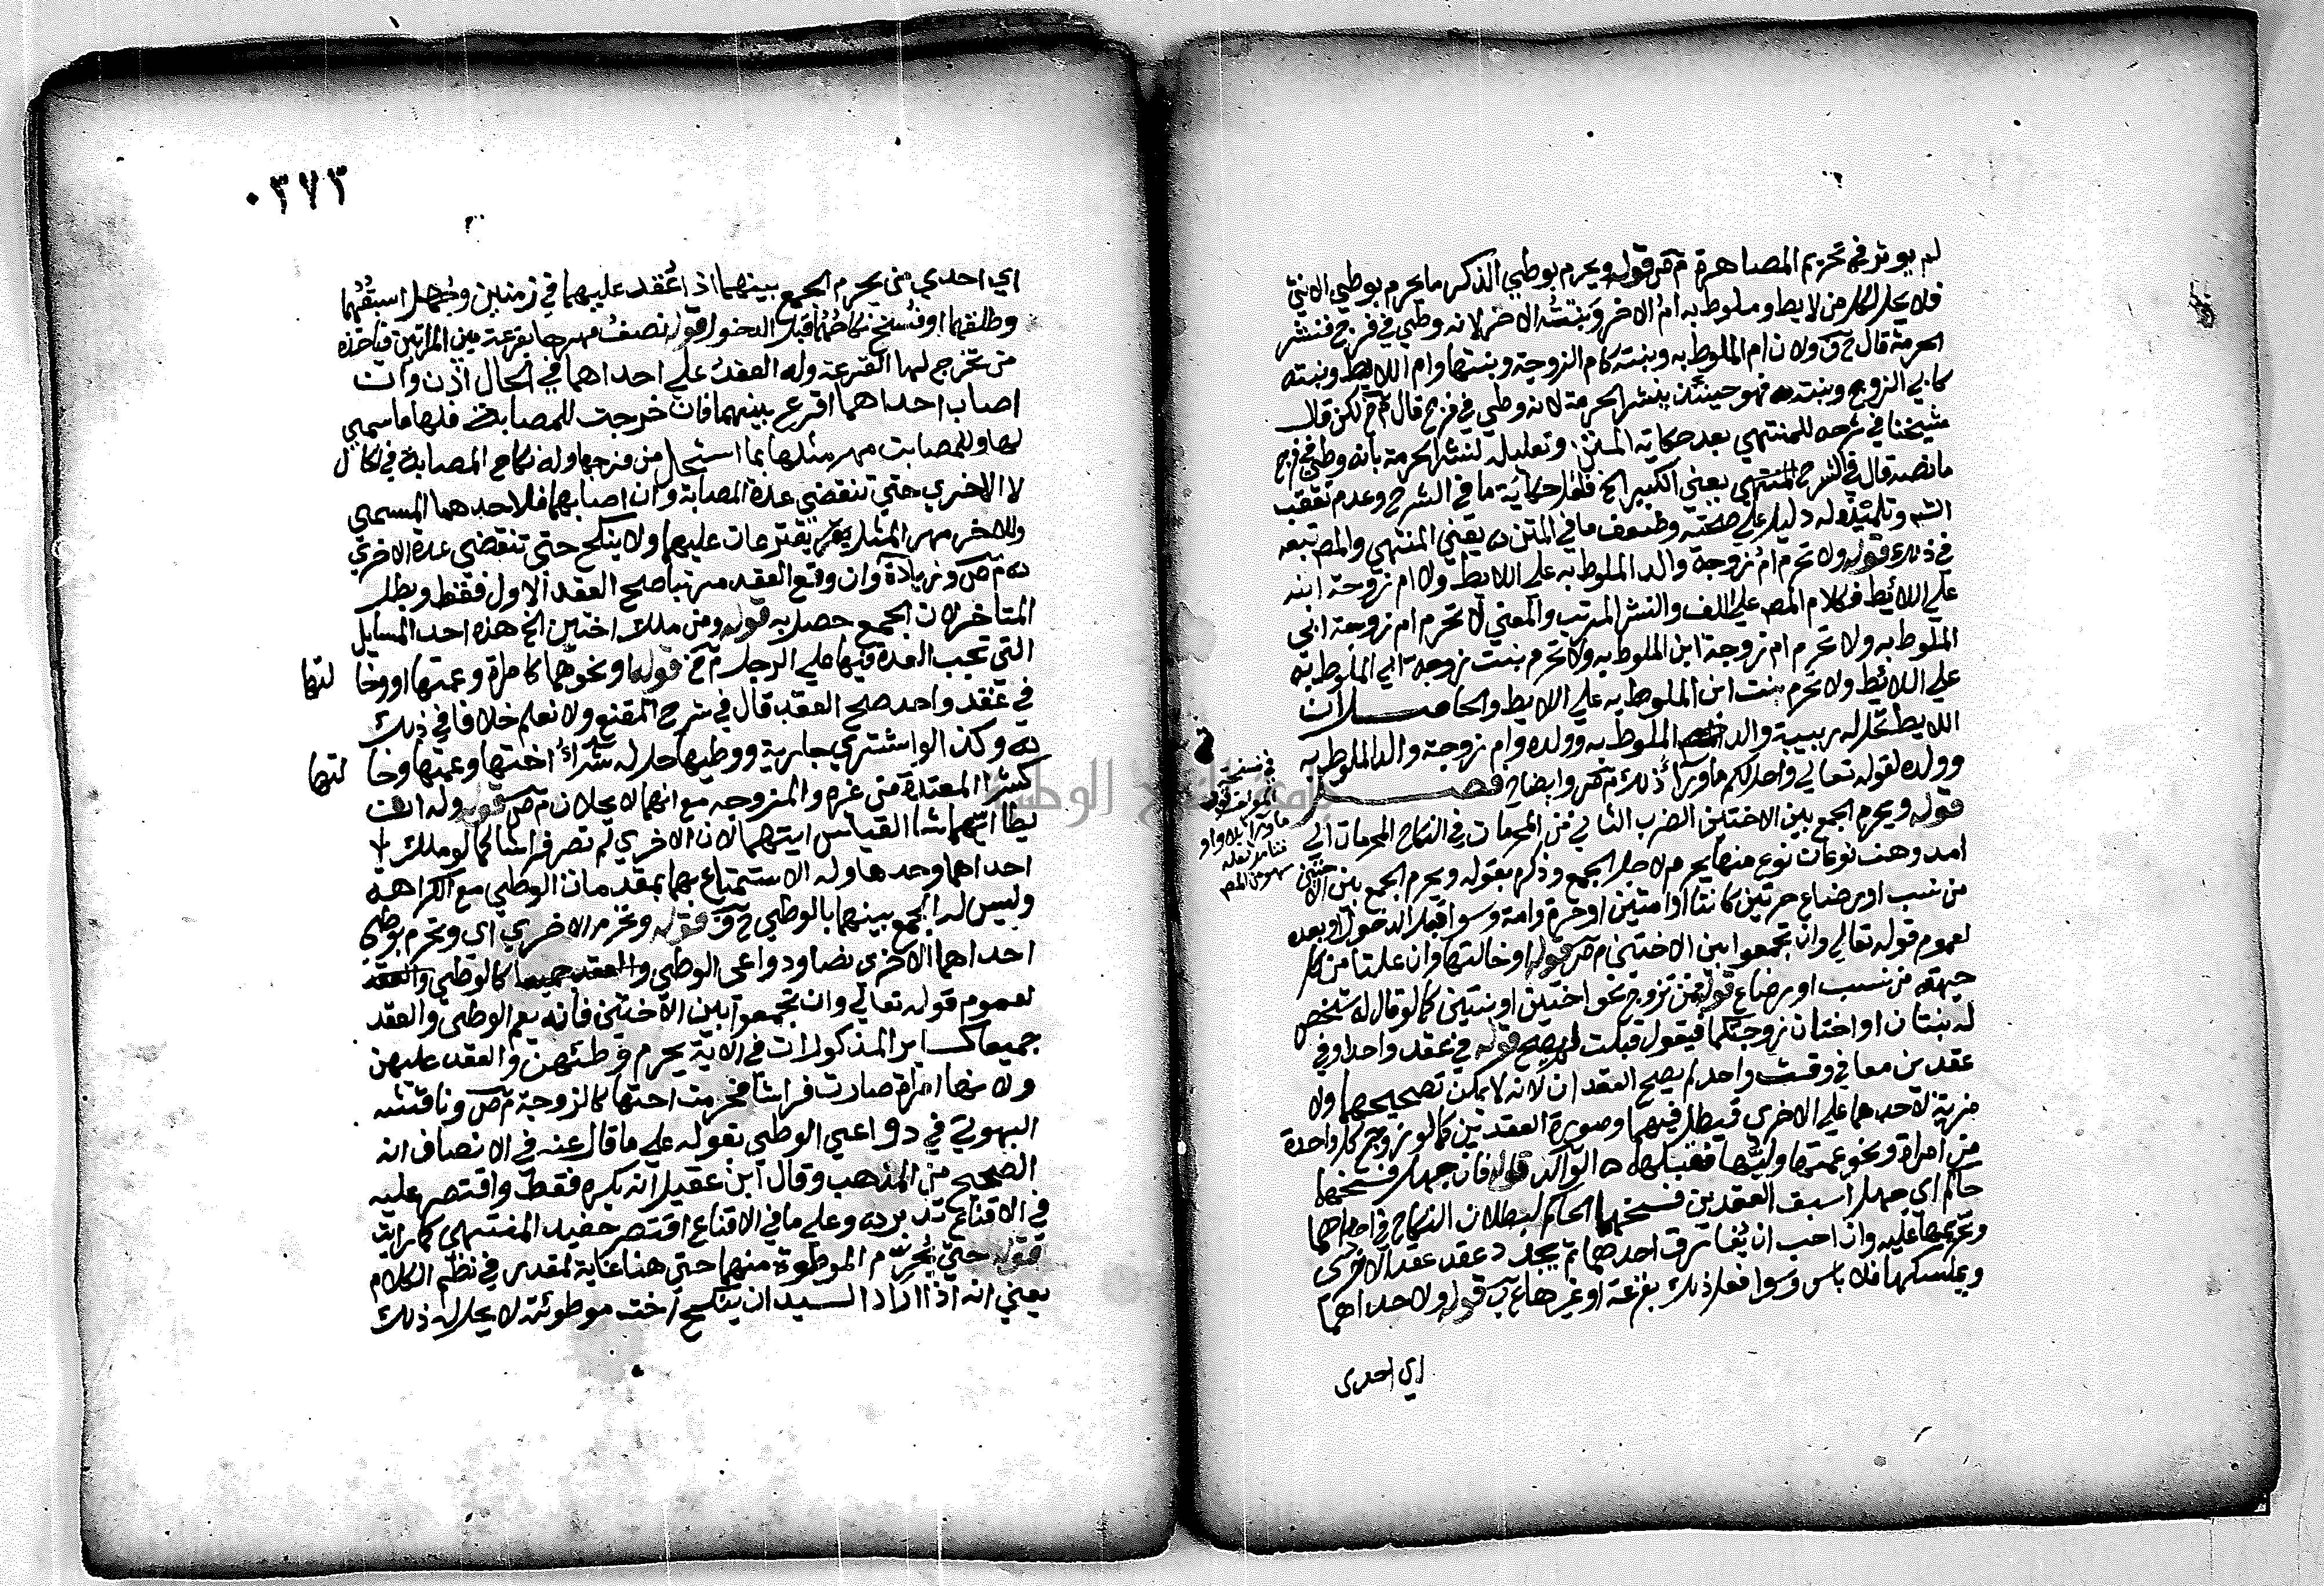 لم يوثر في تحريم المصاهرة م ص قوله ويحرم بوطي الذكر ما يحرم بوطي الانثى
فلا يحل لكل من لايط وملوط به ام الاخر وبنته الاخر لانه وطي في فرج فنشر
الحرمة قال ولان ام الملوط به وبنته كام الزوجة وبنتها وام اللايط وبنته
كابي الزوج وبنته فهو حينئذ ينشر الحرمة لانه وطي في فرج قال لكن قال
شيخنا في شرحه للمنتهي بعد حكاية المتن وتعليله لنشر الحرمة بانه وطي في فرج
ما نصه قال في الشرح المنتهي يعني الكبير الخ فلعل حكاية ما في الشرح وعدم تعقب
الش وتلميذه له دليل على صحته وضعف ما في المتن يعني المنتهي والمص تبعه
في ذلك قوله ولا تحرم ام زوجة والد الملوط به علي اللايط ولا ام زوجة ابنه
علي اللائط فكلام المص علي اللف والنشر المرتب والمعني لا تحرم ام زوجة ابي
الملوط به ولا تحرم ام زوجة ابن الملوط به ولا تحرم بنت زوجة ابي الملوط به
علي اللائط ولا تحرم بنت ابن الملوط به علي اللايط والحاصل ان
اللايط تحل له ربيبة والد الملوط به وولده وام زوجة والد الملوط به
وولده لقوله تعالي واحل لكم ما وراء ذلك م ص وايضاح فصل
قوله ويحرم الجمع بين الاختين الضرب الثاني من المحرمات في النكاح المحرمات الي
امد وهن نوعان نوع منهما يحرم لاجل الجمع وذكره بقوله ويحرم الجمع بين الا ختين
من نسب او رضاع حرتين كانتا او امتين او حرة وامة وسوا قبل الدخول او بعده
لعموم قوله تعالي وان تجمعوا بين الاختين م ص قوله او خالتها وان علتا من كل
جهة من نسب او رضاع قوله فمن تزوج نحو اختين او بنتين كما لو قال له شخص
له بنتان او اختان زوجتكهما فيقول قبلت لم يصح قوله في عقد واحد او في
عقدين معا في وقت واحد لم يصح العقدان لانه لا يمكن تصحيحهما ولا
مزية لاحدهما علي الاخري فيبطل فيهما وصورة العقدين كما لو زوج كل واحدة
من امراة ونحو عمتها وليها فقبلهما قوله فان جهل فسخهما
حاكم اي جهل اسبق العقدين فسخهما الحاكم لبطلان النكاح في احداهما
وتحريمها عليه وان احب ان يفارق احدهما ثم يجدد عقد عقد الاخرى
ويمسكها فلا باس وسوا فعل ذلك بقرعة او غيرها قوله ولاحداهما
اي احدى
في نسخة
ما وراء بلا واو
٠٣٧٣
اي احدي من يحرم الجمع بينهما اذا عقد عليهما في زمنين وجهل اسبقهما
وطلقهما او فسخ نكاحهما قبل الدخول قوله نصف مهرها بقرعة بين المراتين فتاخذه
من تخرج لها القرعة وله العقد علي احداهما في الحال اذن وان
اصاب احداهما اقرع بينهما فان خرجت للمصابة فلها ما سمي
لها وللمصابت مهر مثلها بما استحل من فرجها وله نكاح المصابة في الحال
لا الاخري حتي تنقضي عدة المصابة وان اصابهما فلاحدهما المسمي
وللاخر مهر المثل يقترعان عليهما ولا ينكح حتي تنقضي عدة الاخري
م ص وزيادة وان وقع العقد مرتبا صح العقد الاول فقط وبطل
المتاخر لان الجمع حصل به قوله ومن ملك اختين الخ هذه احد المسايل
التي تجب العدة فيها علي الرجل م خ قوله او نحوهما كامراة وعمتها او وخا لتها
في عقد واحد صح العقد قال في شرح المقنع ولا نعلم خلافا في ذلك
وكذا لو اشتري جارية ووطيها حل له شراء اختها وعمتها وخا لتها
كشرا المعتدة من غيره والمزوجة مع انهما لا يحلان م ص قوله وله ان
يطا ايتهما شا القياس ايتهما لان الاخري لم تصر فراشا كما لو ملك
احداهما وحدها وله الاستمتاع بهما بمقدمات الوطي مع الكراهة
وليس له الجمع بينهما بالوطي قوله وتحرم الاخري اي وتحرم بوطي
احداهما الاخرى نصا ودواعي الوطي والعقد جميعا كالوطي والعقد
لعموم قوله تعالي وان تجمعوا بين الاختين فانه يعم الوطي والعقد
جميعا كساير المذكورات في الاية يحرم وطئهن والعقد عليهن
ولانها امراة صارت فراشا فحرمت اختها كالزوجة م ص وناقشه
البهوتي في دواعي الوطي بقوله علي ما قال عنه في الانصاف انه
الصحيح من المذهب وقال ابن عقيل انه يكره فقط واقتصر عليه
في الاقناع وعلي ما في الاقناع اقتصر حفيد المنتهى كما رايت
قوله حتي يحرم الموطوة منهما حتي هنا غاية لمقدر في نظم الكلام
يعني انه اذا اراد السيد ان ينكح اخت موطوئته لا يحل له ذلك